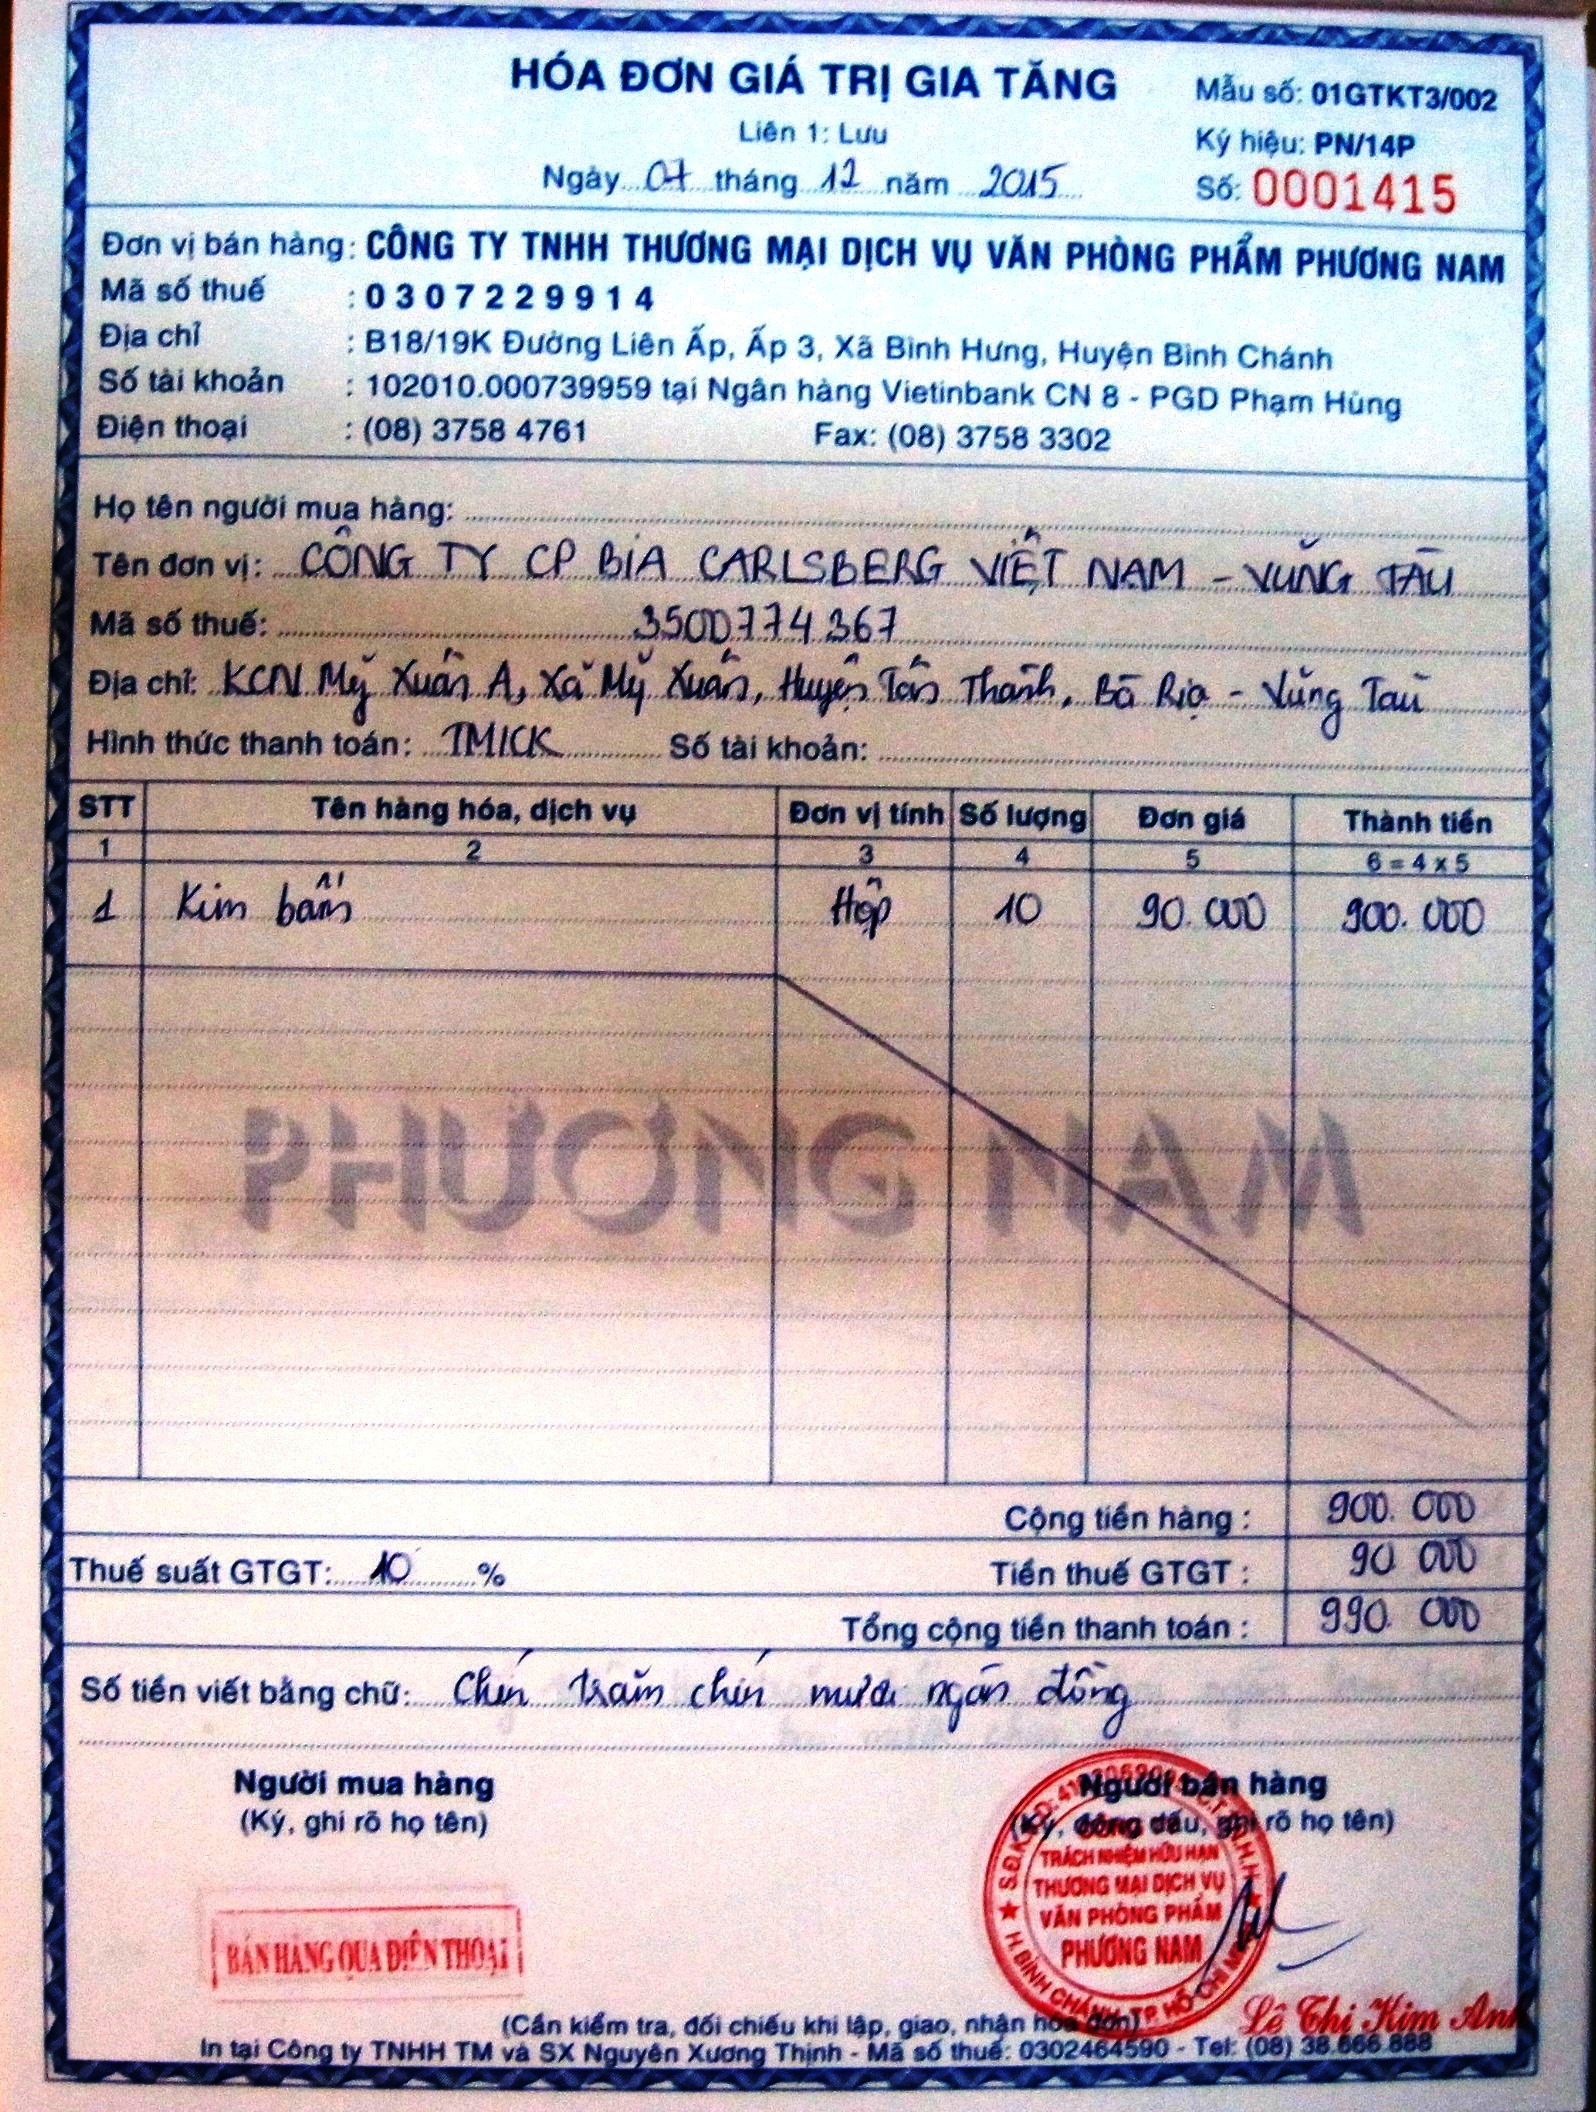 HÓA ĐƠN GIÁ TRỊ GIA TĂNG
Mẫu số: 01GTKT3/002
Liên 1: Lưu
Ký hiệu: PN/14P
Ngày 07 tháng 12 năm 2015
Số: 0001415
Đơn vị bán hàng: CÔNG TY TNHH THƯƠNG MẠI DỊCH VỤ VĂN PHÒNG PHẨM PHƯƠNG NAM
Mã số thuế : 0307229914
Địa chỉ : B18/19K Đường Liên Ấp, Ấp 3, Xã Bình Hưng, Huyện Bình Chánh
Số tài khoản : 102010.000739959 tại Ngân hàng Vietinbank CN 8 - PGD Phạm Hùng
Điện thoại : (08) 3758 4761 Fax: (08) 3758 3302
Họ tên người mua hàng:
Tên đơn vị: CÔNG TY CP BIA CARLSBERG VIỆT NAM - VŨNG TÀU
Mã số thuế: 3500774367
Địa chỉ: KCN Mỹ Xuân A, Xã Mỹ Xuân, Huyện Tân Thành, Bà Rịa - Vũng Tàu
Hình thức thanh toán: TM/CK Số tài khoản:
STT Tên hàng hóa, dịch vụ Đơn vị tính Số lượng Đơn giá Thành tiền
1 2 3 4 5 6 = 4 x 5
1 Kim bấm Hộp 10 90.000 900.000
PHƯƠNG NAM
Cộng tiền hàng : 900.000
Thuế suất GTGT: 10 % Tiền thuế GTGT : 90 000
Tổng cộng tiền thanh toán : 990.000
Số tiền viết bằng chữ: Chín trăm chín mươi ngàn đồng
Người mua hàng Người bán hàng
(Ký, ghi rõ họ tên) (Ký, đóng dấu, ghi rõ họ tên)
TRÁCH NHIỆM HỮU HẠN
THƯƠNG MẠI DỊCH VỤ
VĂN PHÒNG PHẨM
PHƯƠNG NAM
H.BÌNH CHÁNH - TP HỒ CHÍ MINH
BÁN HÀNG QUA ĐIỆN THOẠI
Lê Thị Kim Anh
(Cần kiểm tra, đối chiếu khi lập, giao, nhận hóa đơn)
In tại Công ty TNHH TM và SX Nguyên Xương Thịnh - Mã số thuế: 0302464590 - Tel: (08) 38.666.888